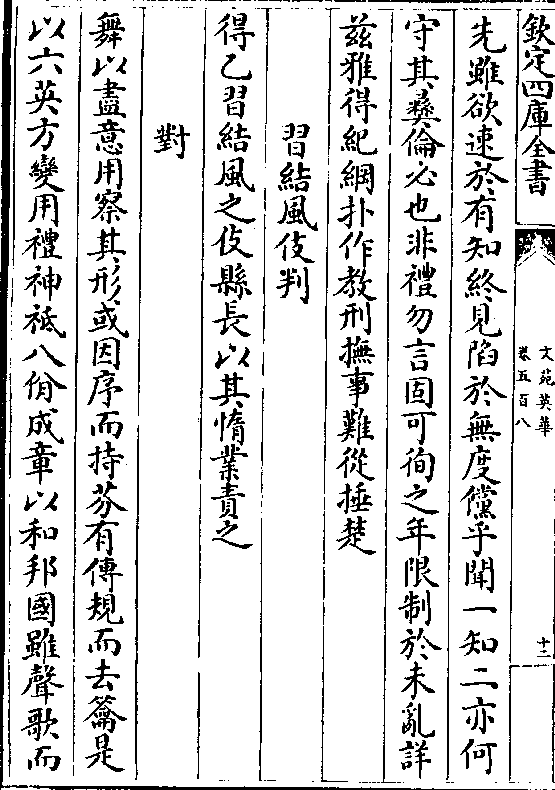 欽定四庫全書
文苑英華
卷五百八
十二
先雖欲速於有知終見陷於無度儻乎聞一知二亦何
守其彝倫必也非禮勿言固可徇之年限制於未亂詳
茲雅得紀綱扑作教刑撫事難從捶楚
習結風伎判
得乙習結風之伎縣長以其惰業責之
對
舞以盡意用察其形或因序而持芬有傳規而去籥是
以六英方變用禮神祇八佾成章以和邦國雖聲歌而